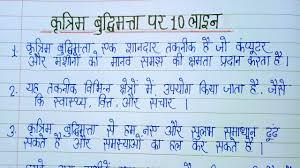 कृत्रिम बुद्धिमत्ता पर 10 लाइन
1. कृत्रिम बुद्धिमत्ता एक शानदार तकनीक है जो कंप्यूटर
और मशीनों को मानव समझ की क्षमता प्रदान करता है।
2. यह तकनीक विभिन्न क्षेत्रों में उपयोग किया जाता है, जैसे
कि स्वास्थ्य, वित्त, और संचार।
3. कृत्रिम बुद्धिमत्ता से हम नए और सुलभ समाधान ढूंढ
सकते हैं और समस्याओं का हल कर सकते हैं।